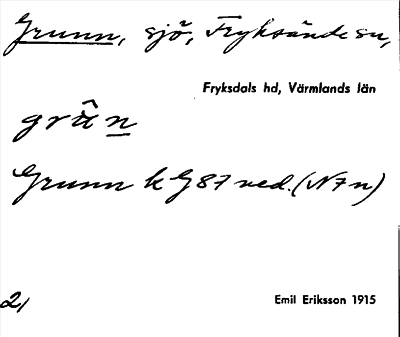 Grunn, sjö, Fryksände sn,
Fryksdals hd, Värmlands län
grân
Grunn k G87 ned. (N7n)
2,
Emil Eriksson 1915